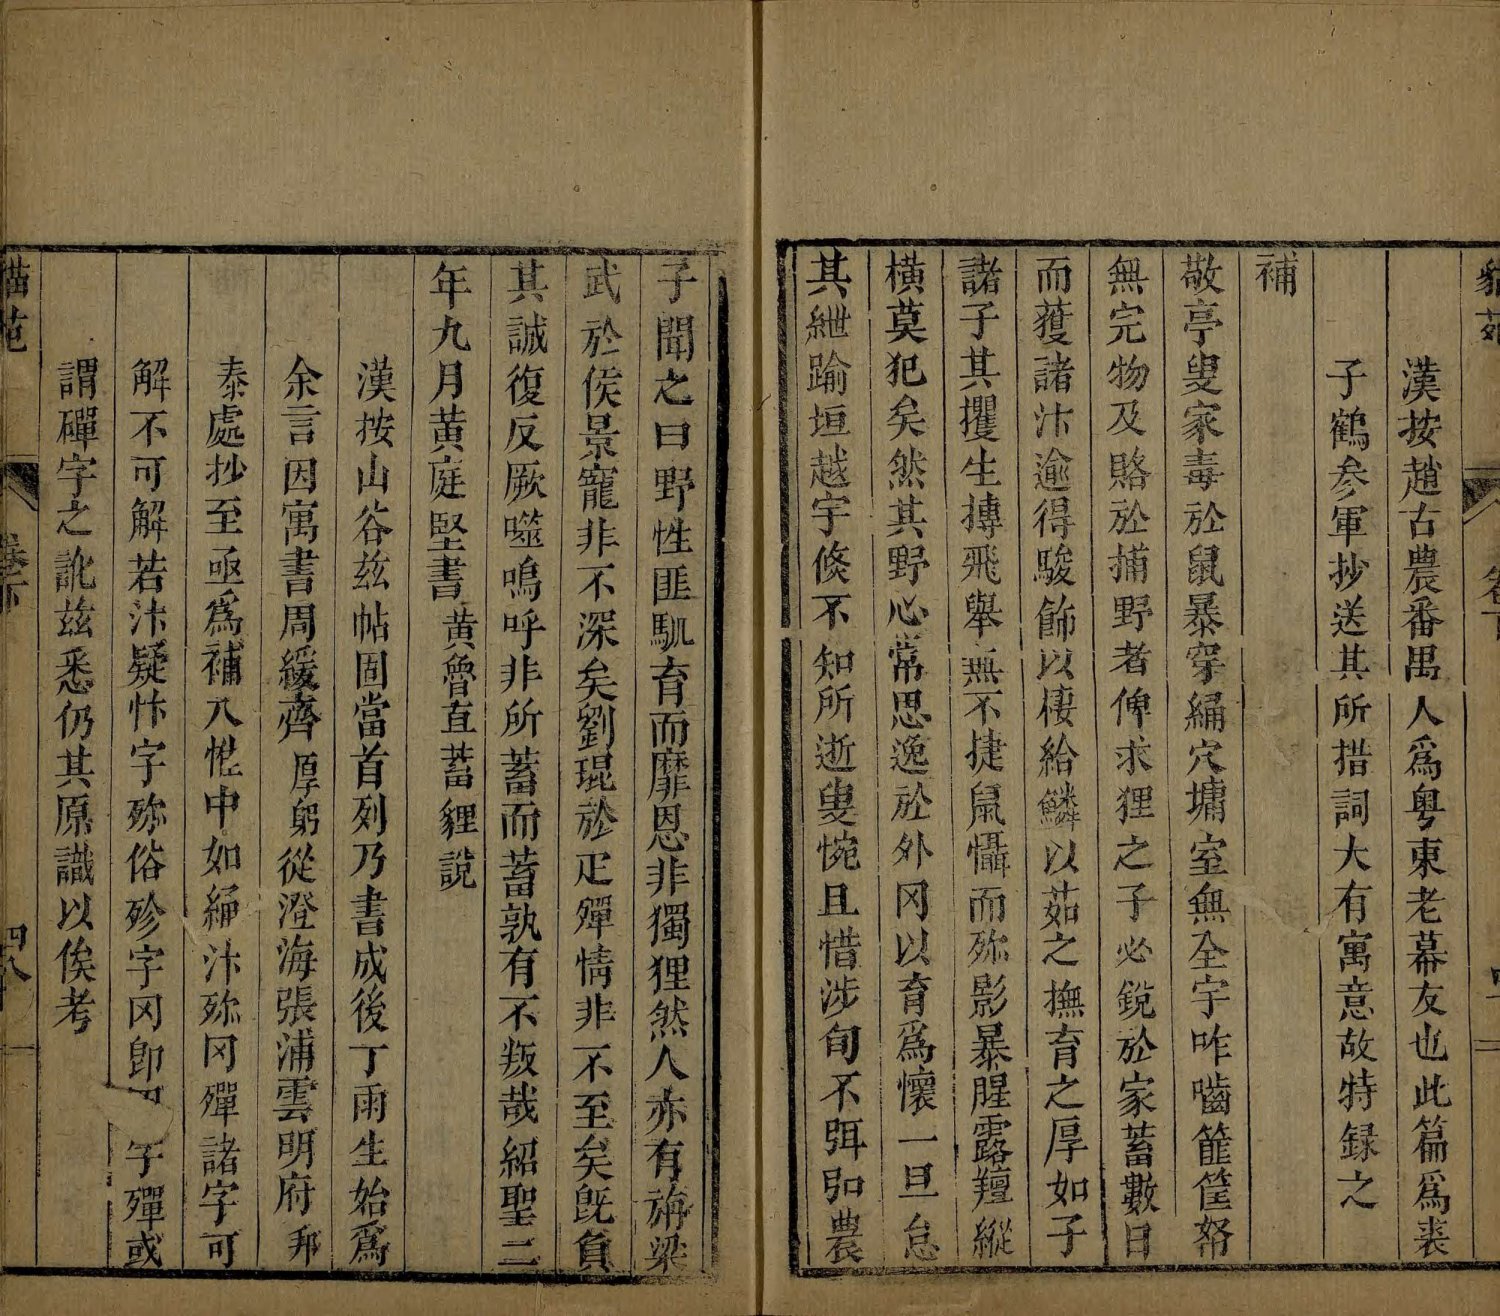 貓苑
卷下
漢按趙古農番禺人爲粤東老幕友也此篇爲裘
子鶴参軍抄送其所措詞大有寓意故特録之
補
敬亭叟家毒於鼠暴穿緟穴墉室無全宇咋嚙篚筐帑
無完物及賂於捕野者俾求狸之子必銳於家蓄數日
而獲諸汴逾得駿飾以棲給鱗以茹之撫育之厚如子
諸子其攫生搏飛舉無不捷鼠懾而殄影暴腥露羶縱
橫莫犯矣然其野心常思逸於外冈以育爲懷一旦怠
其紲踰垣越宇倏不知所逝叟惋且惜涉旬不弭弘農
子聞之曰野性匪馴育而靡恩非獨狸然人亦有旃梁
武於侯景寵非不深矣劉琨於疋殫情非不至矣既負
其誠復反厥噬嗚呼非所蓄而蓄孰有不叛哉紹聖二
年九月黄庭堅書黄魯直蓄貍說
漢按山谷茲帖固當首列乃書成後丁雨生始爲
余言因寓書周緩齊厚躬從澄海張浦雲明府邦
泰處抄至亟爲補入惟中如緟汴殄冈殫諸字可
解不可解若汴疑忭字殄俗珍字冈即字殫或
謂磾字之訛茲悉仍其原識以俟考
貓苑
卷下
四八